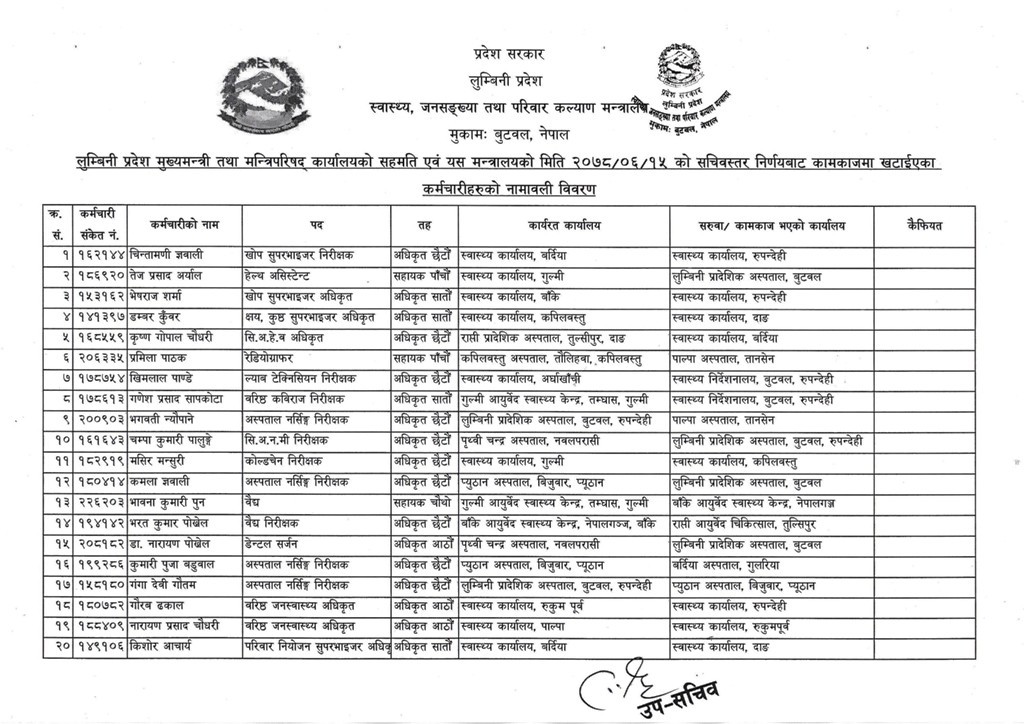 प्रदेश सरकार
लुम्बिनी प्रदेश
स्वास्थ्य, जनसङ्ख्या तथा परिवार कल्याण मन्त्रालय
मुकामः बुटवल, नेपाल
प्रदेश सरकार
लुम्बिनी प्रदेश
मुकामः बुटवल, नेपाल
लुम्बिनी प्रदेश मुख्यमन्त्री तथा मन्त्रिपरिषद् कार्यालयको सहमति एवं यस मन्त्रालयको मिति २०७८/०६/१५ को सचिवस्तर निर्णयबाट कामकाजमा खटाईएका
कर्मचारीहरुको नामावली विवरण
क्र. सं. कर्मचारी संकेत नं. कर्मचारीको नाम पद तह कार्यरत कार्यालय सरुवा/ कामकाज भएको कार्यालय कैफियत
१ १६२१४४ चिन्तामणी ज्ञवाली खोप सुपरभाइजर निरीक्षक अधिकृत छैटौँ स्वास्थ्य कार्यालय, बर्दिया स्वास्थ्य कार्यालय, रुपन्देही
२ १८६९२० तेज प्रसाद अर्याल हेल्थ असिस्टेन्ट सहायक पाँचौँ स्वास्थ्य कार्यालय, गुल्मी लुम्बिनी प्रादेशिक अस्पताल, बुटवल
३ १५३१६२ भेषराज शर्मा खोप सुपरभाइजर अधिकृत अधिकृत सातौँ स्वास्थ्य कार्यालय, बाँके स्वास्थ्य कार्यालय, रुपन्देही
४ १४१३९७ डम्बर कुँवर क्षय, कुष्ठ सुपरभाइजर अधिकृत अधिकृत सातौँ स्वास्थ्य कार्यालय, कपिलवस्तु स्वास्थ्य कार्यालय, दाङ
५ १६८५५९ कृष्ण गोपाल चौधरी सि.अ.हे.व अधिकृत अधिकृत छैटौँ राप्ती प्रादेशिक अस्पताल, तुल्सिपुर, दाङ स्वास्थ्य कार्यालय, बर्दिया
६ २०६३३५ प्रमिला पाठक रेडियोग्राफर सहायक पाँचौँ कपिलवस्तु अस्पताल, तौलिहवा, कपिलवस्तु पाल्पा अस्पताल, तानसेन
७ १७८७५४ खिमलाल पाण्डे ल्याब टेक्निसियन निरीक्षक अधिकृत छैटौँ स्वास्थ्य कार्यालय, अर्घाखाँची स्वास्थ्य निर्देशनालय, बुटवल, रुपन्देही
८ १७८६१३ गणेश प्रसाद सापकोटा बरिष्ठ कविराज निरीक्षक अधिकृत सातौँ गुल्मी आयुर्वेद स्वास्थ्य केन्द्र, तम्घास, गुल्मी स्वास्थ्य निर्देशनालय, बुटवल, रुपन्देही
९ २००९०३ भगवती न्यौपाने अस्पताल नर्सिङ्ग निरीक्षक अधिकृत छैटौँ लुम्बिनी प्रादेशिक अस्पताल, बुटवल, रुपन्देही पाल्पा अस्पताल, तानसेन
१० १६१६४३ चम्पा कुमारी पालुङ्गे सि.अ.न.मी निरीक्षक अधिकृत छैटौँ पृथ्वी चन्द्र अस्पताल, नवलपरासी लुम्बिनी प्रादेशिक अस्पताल, बुटवल, रुपन्देही
११ १८२९१९ मसिर मन्सुरी कोल्डचेन निरीक्षक अधिकृत छैटौँ स्वास्थ्य कार्यालय, गुल्मी स्वास्थ्य कार्यालय, कपिलवस्तु
१२ १८०४१४ कमला ज्ञवाली अस्पताल नर्सिङ्ग निरीक्षक अधिकृत छैटौँ प्युठान अस्पताल, बिजुबार, प्यूठान लुम्बिनी प्रादेशिक अस्पताल, बुटवल
१३ २२६२०३ भावना कुमारी पुन बैद्य सहायक चौथो गुल्मी आयुर्वेद स्वास्थ्य केन्द्र, तम्घास, गुल्मी बाँके आयुर्वेद स्वास्थ्य केन्द्र, नेपालगञ्ज
१४ १९४१४२ भरत कुमार पोख्रेल बैद्य निरीक्षक अधिकृत छैटौँ बाँके आयुर्वेद स्वास्थ्य केन्द्र, नेपालगञ्ज, बाँके राप्ती आयुर्वेद चिकित्साल, तुल्सिपुर
१५ २०८१८२ डा. नारायण पोख्रेल डेन्टल सर्जन अधिकृत आठौँ पृथ्वी चन्द्र अस्पताल, नवलपरासी लुम्बिनी प्रादेशिक अस्पताल, बुटवल
१६ १९९२८६ कुमारी पुजा बडुवाल अस्पताल नर्सिङ्ग निरीक्षक अधिकृत छैटौँ प्युठान अस्पताल, बिजुबार, प्यूठान बर्दिया अस्पताल, गुलरिया
१७ १५८१८० गंगा देवी गौतम अस्पताल नर्सिङ्ग निरीक्षक अधिकृत छैटौँ लुम्बिनी प्रादेशिक अस्पताल, बुटवल, रुपन्देही प्युठान अस्पताल, बिजुबार, प्यूठान
१८ १८०७८२ गौरब ढकाल बरिष्ठ जनस्वास्थ्य अधिकृत अधिकृत आठौँ स्वास्थ्य कार्यालय, रुकुम पूर्व स्वास्थ्य कार्यालय, रुपन्देही
१९ १८८४०९ नारायण प्रसाद चौधरी बरिष्ठ जनस्वास्थ्य अधिकृत अधिकृत आठौँ स्वास्थ्य कार्यालय, पाल्पा स्वास्थ्य कार्यालय, रुकुमपूर्व
२० १४९१०६ किशोर आचार्य परिवार नियोजन सुपरभाइजर अधिकृ अधिकृत सातौँ स्वास्थ्य कार्यालय, बर्दिया स्वास्थ्य कार्यालय, दाङ
उप-सचिव